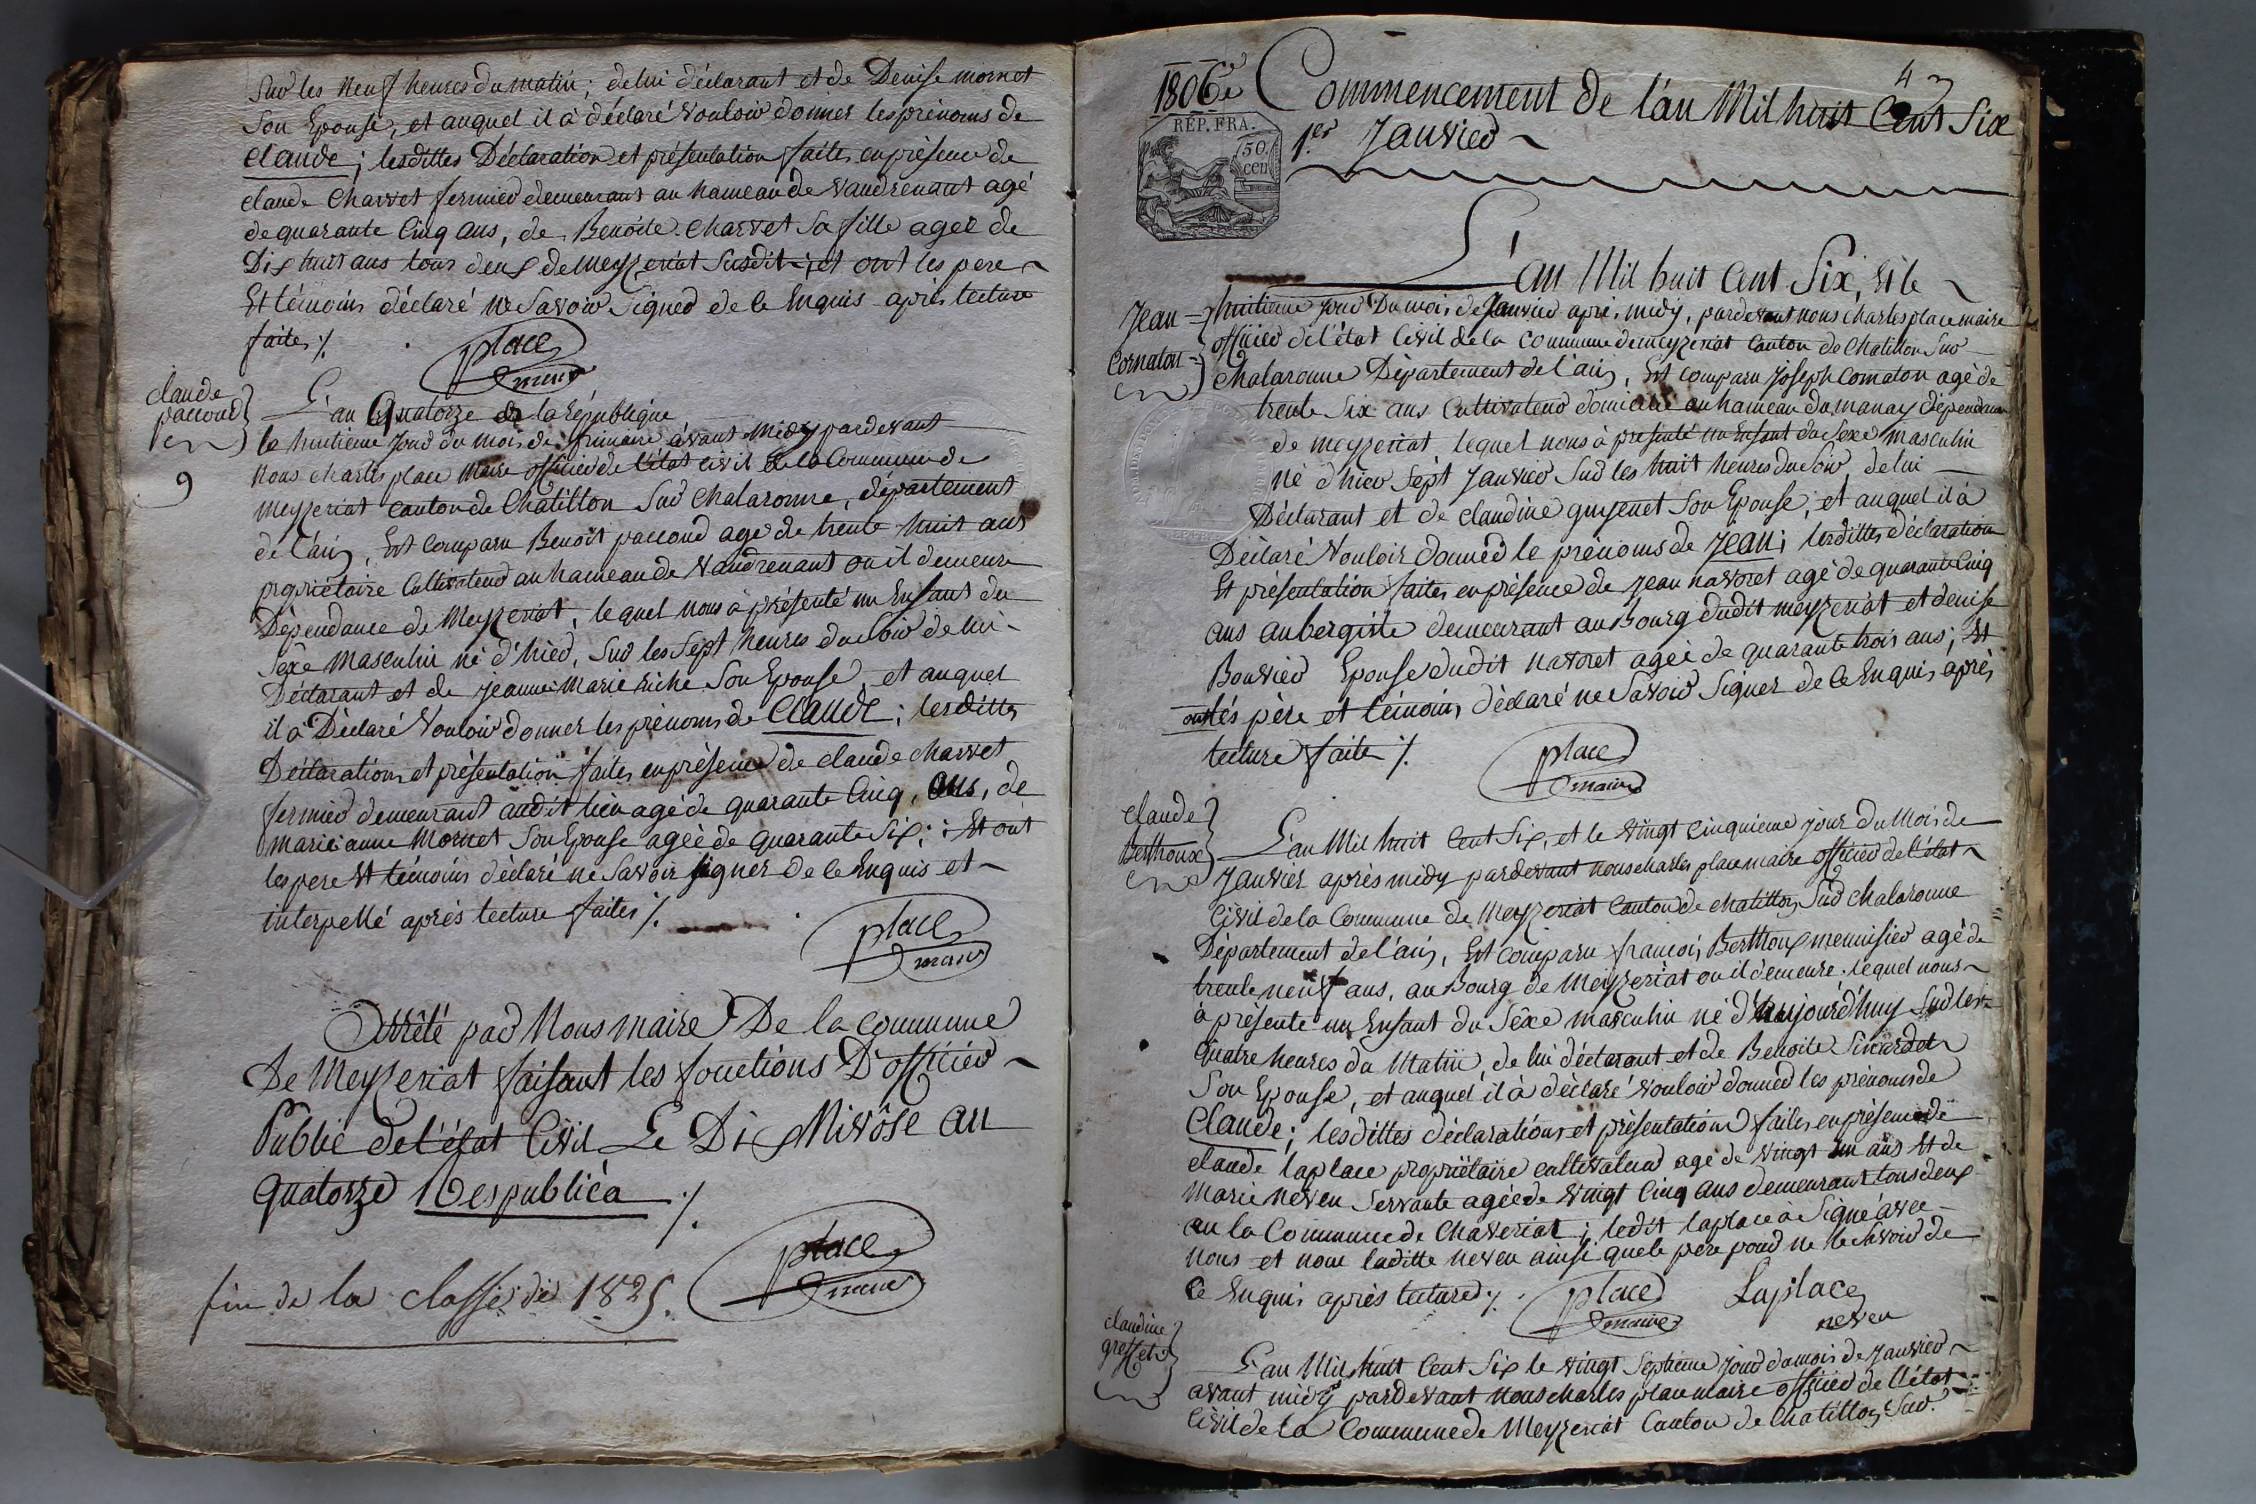 Sur les neuf heures du matin ; de lui déclarant et de Denise mornet
Son Epouse, et auquel il à déclaré vouloir donner les prénoms de
claude ; lesdittes Déclaration et présentation faites en présence de
claude Charvet fermier demeurant au hameau de vaudrenant agé
de quarante Cinq ans, de Benoite Charvet Sa fille agée de
Dix huit ans tous deux de meyzeriat Susdit ; et ont les pere
Et témoins déclaré ne Savoir Signer de ce Enquis après lecture
faites /.
place
maire
claude
paccoud
9
L'an Quatorze de la République
le huitième Jour du mois de frimaire avant Midy pardevant
Nous charles place Maire officier de l'état civil de la Commune de
meyzeriat canton de Chatillon Sur Chalaronne, département
de l'ain, Est comparu Benoit paccoud agé de trente huit ans
propriétaire Cultivateur au hameau de vaudrenant ou il demeure
Dépendance de Meyzeriat, lequel nous à présenté un Enfant du
Sexe Masculin né d'hier, Sur les Sept heures du Soir de lui
Déclarant et de jeanne Marie riche Son Epouse, et auquel
il à Déclaré vouloir donner les prénoms de Claude ; lesdittes
Déclarations et présentation faites en présence de claude charvet
fermier demeurant audit lieu agé de quarante Cinq, ans, de
marieanne Mornet Son Epouse agée de quarante Six ; Et ont
les pere Et témoins déclaré ne Savoir signer de ce Enquis et
interpellé après lecture faites /.
place
maire
Arrêté par Nous maire De la commune
De Meyzeriat faisant les fonctions D'officier
Public de l'état Civil Le Dix Nivôse an
quatorze Respublica /.
place
maire
fin de la classe de 1825.
4
1806
Commencement de l'an Mil huit Cent Six
1er Janvier
REP. FRA.
50
cen
L'an Mil huit Cent Six, et le
Jean
Cornaton
huitieme jour Du mois de Janvier après midy, pardevant nous charles place maire
officier de l'état Civil de la commune de meyzeriat Canton de Chatillon Sur
Chalaronne Département de l'ain, Est comparu Joseph Cornaton agé de
trente Six ans Cultivateur domicilié au hameau du manay dépendance
de meyzeriat lequel nous à présenté un Enfant du Sexe masculin
né d'hier Sept Janvier Sur les huit heures du Soir de lui
Déclarant et de claudine guyenet Son Epouse, et auquel il à
Déclaré vouloir donner le prénoms de Jean ; lesdittes déclaration
Et présentation faites en présence de Jean navoret agé de quarante Cinq
ans aubergiste demeurant au Bourg dudit meyzeriat et denise
Bouvier Epouse dudit navoret agée de quarante trois ans ; Et
ont lés père et témoins déclaré ne Savoir Signer de ce Enquis après
lecture faite /.
place
maire
claude
Berthoux
L'an Mil huit Cent Six, et le vingt cinquieme jour Du Mois de
Janvier après midy pardevant nous charles place maire officier de l'état
Civil de la Commune de Meyzeriat Canton de chatillon Sur chalaronne
Département de l'ain, Est comparu françois Berthoux menuisier agé de
trente neuf ans, au Bourg de Meyzeriat ou il demeure. lequel nous
à présenté un Enfant du Sexe masculin né d'aujourd'huy Sur les
quatre heures du Matin, de lui déclarant et de Benoite Sicardet
Son Epouse, et auquel il à déclaré vouloir donner les prénoms de
Claude ; lesdittes déclarations et présentation faites en présence de
claude laplace propriétaire cultivateur agé de vingt un ans Et de
Marie neveu Servante agée de vingt Cinq ans demeurant tous deux
en la Commune de Chaveriat ; ledit laplace a Signé avec
nous et non laditte neveu ainsi que le père pour ne le Savoir de
ce Enquis après lecture /.
place
maire
Laplace
neveu
claudine
grezet
L'an Mil huit Cent Six le vingt Septieme jour du mois de Janvier
avant midy pardevant nous charles place maire officier de l'état
Civil de la Commune de Meyzeriat Canton de Chatillon Sur